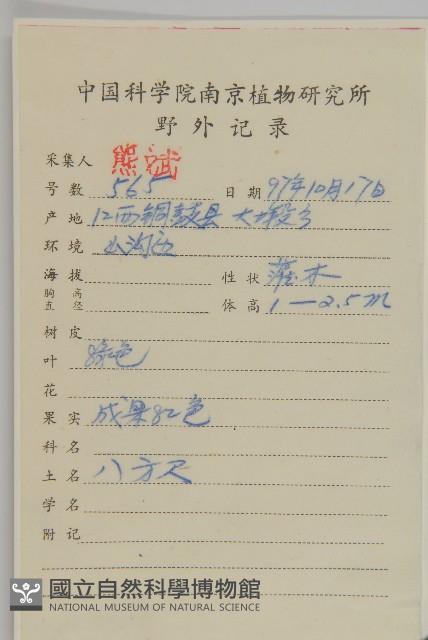 中国科学院南京植物研究所
野外记录
采集人 熊斌
号数 565 日期 97年10月17日
产地 江西铜鼓县 大塅乡
环境 山沟边
海拔 性状 灌木
胸高直径 体高 1—2.5m
树皮
叶 绿色
花
果实 成果红色
科名
土名 八方尺
学名
附记
國立自然科學博物館
NATIONAL MUSEUM OF NATURAL SCIENCE